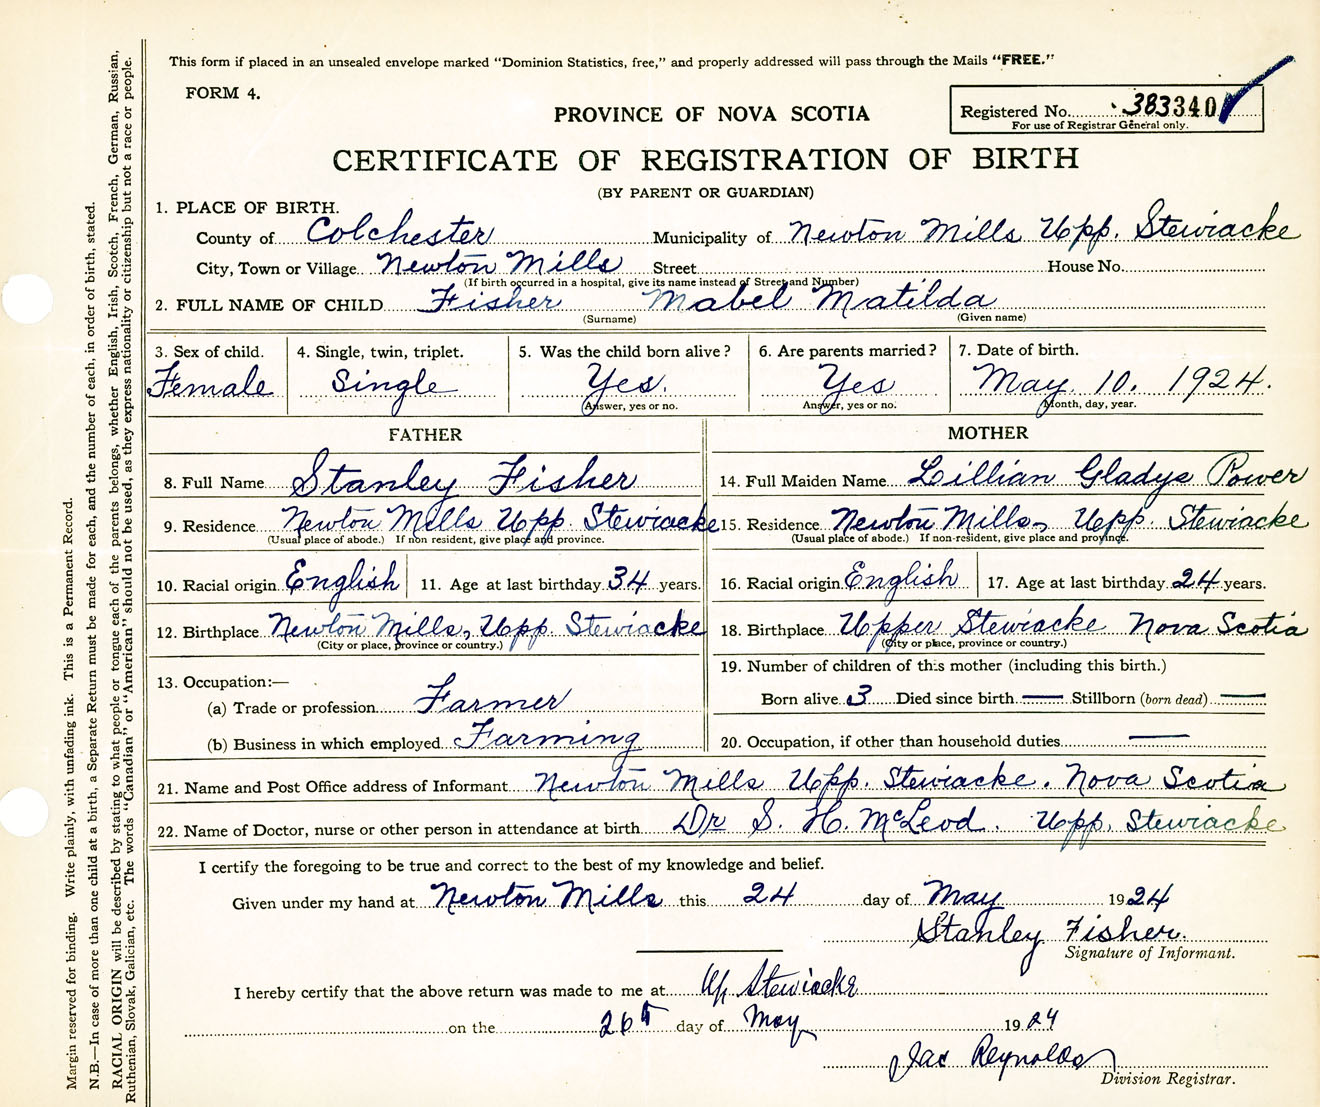 This form if placed in an unsealed envelope marked "Dominion Statistics, free," and properly addressed will pass through the Mails "FREE."
FORM 4.
PROVINCE OF NOVA SCOTIA
Registered No. 383340
For use of Registrar General only.
CERTIFICATE OF REGISTRATION OF BIRTH
(BY PARENT OR GUARDIAN)
1. PLACE OF BIRTH.
County of Colchester Municipality of Newton Mills Upp. Stewiacke
City, Town or Village Newton Mills Street House No.
(If birth occurred in a hospital, give its name instead of Street and Number)
2. FULL NAME OF CHILD Fisher Mabel Matilda
(Surname) (Given name)
3. Sex of child. 4. Single, twin, triplet. 5. Was the child born alive? 6. Are parents married? 7. Date of birth.
Female Single Yes. Yes May 10. 1924.
Answer, yes or no. Answer, yes or no. Month, day, year.
FATHER MOTHER
8. Full Name Stanley Fisher 14. Full Maiden Name Lillian Gladys Power
9. Residence Newton Mills Upp. Stewiacke 15. Residence Newton Mills, Upp. Stewiacke
(Usual place of abode.) If non resident, give place and province. (Usual place of abode.) If non-resident, give place and province.
10. Racial origin English 11. Age at last birthday 34 years. 16. Racial origin English 17. Age at last birthday 24 years.
12. Birthplace Newton Mills, Upp. Stewiacke 18. Birthplace Upper Stewiacke Nova Scotia
(City or place, province or country.) (City or place, province or country.)
13. Occupation:— 19. Number of children of this mother (including this birth.)
(a) Trade or profession Farmer Born alive 3 Died since birth — Stillborn (born dead) —
(b) Business in which employed Farming 20. Occupation, if other than household duties —
21. Name and Post Office address of Informant Newton Mills Upp. Stewiacke. Nova Scotia
22. Name of Doctor, nurse or other person in attendance at birth Dr S. H. McLeod. Upp. Stewiacke
I certify the foregoing to be true and correct to the best of my knowledge and belief.
Given under my hand at Newton Mills this 24 day of May 1924
Stanley Fisher.
Signature of Informant.
I hereby certify that the above return was made to me at Up Stewiacke
on the 26th day of May 1924
Jas Reynolds
Division Registrar.
Margin reserved for binding. Write plainly, with unfading ink. This is a Permanent Record.
N.B.—In case of more than one child at a birth, a Separate Return must be made for each, and the number of each, in order of birth, stated.
RACIAL ORIGIN will be described by stating to what people or tongue each of the parents belongs, whether English, Irish, Scotch, French, German, Russian,
Ruthenian, Slovak, Galician, etc. The words "Canadian" or "American" should not be used, as they express nationality or citizenship but not a race or people.